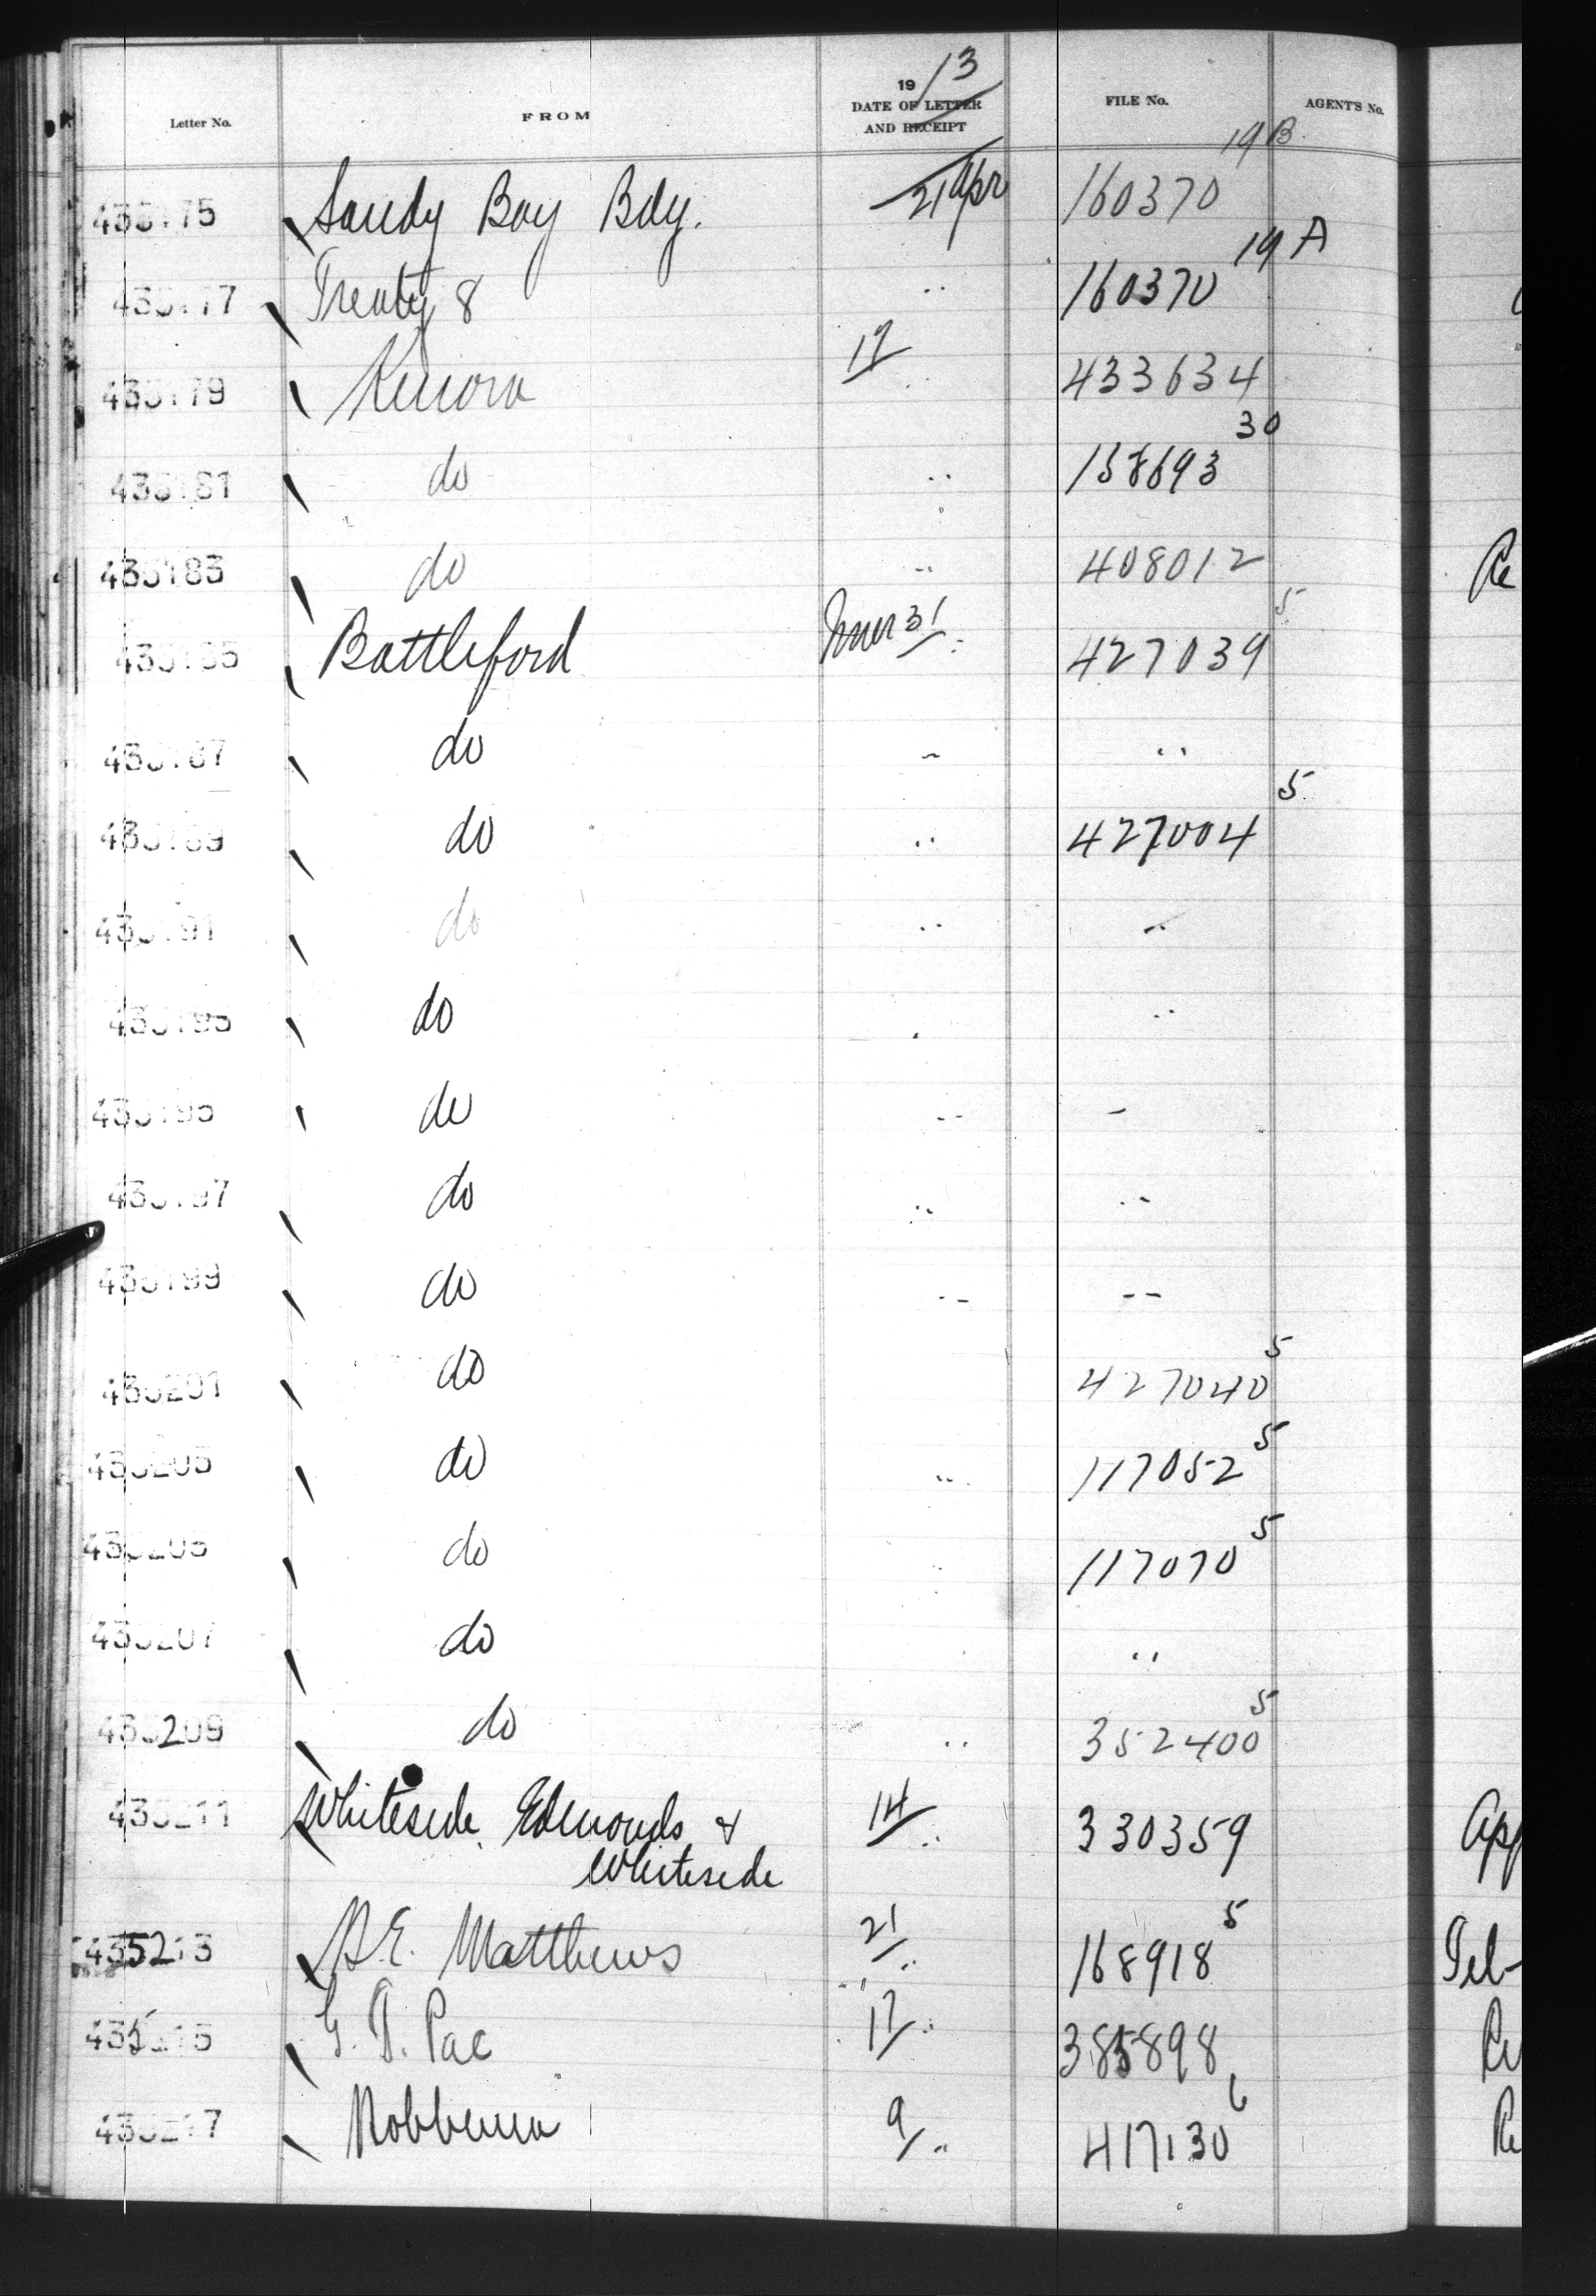 19/13
Letter No. FROM DATE OF LETTER AND RECEIPT FILE No. AGENT'S No.
435175 Sandy Bay Bdy. 21 Apr 160370 19B
435177 Treaty 8 " 160370 19A
435179 Kenora 17 " 433634
435181 do " 158693 30
435183 do " 408012 Re
435185 Battleford Mar 31 " 427039 5
435187 do " "
435189 do " 427004 5
435191 do " "
435193 do " "
435195 do " "
435197 do " "
435199 do " "
435201 do 427040 5
435203 do " 117052 5
435205 do " 117070 5
435207 do "
435209 do " 352400 5
435211 Whiteside Edmonds & 14 " 330359
Whiteside
435213 A.E. Matthews 21 " 168918 5 Tel-
435215 G. T. Pac 17 " 385898
435217 Hobbema 9 " 417130 6 Re